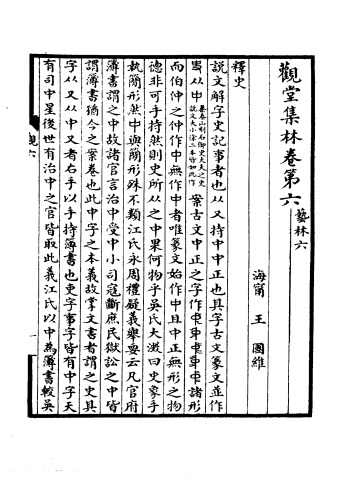 觀堂集林卷第六
藝林六
海甯 王國維
釋史
說文解字史記事者也从又持中中正也其字古文篆文並作
从中秦泰山刻石御史大夫之史說文大小徐二本皆如此作案古文中正之字作諸形
而伯仲之仲作中無作中者唯篆文始作中且中正無形之物
德非可手持然則史所从之中果何物乎吳氏大澂曰史象手
執簡形然中與簡形殊不類江氏永周禮疑義舉要云凡官府
簿書謂之中故諸官言治中受中小司寇斷庶民獄訟之中皆
謂簿書猶今之案卷也此中字之本義故掌文書者謂之史其
字从又从中又者右手以手持簿書也吏字事字皆有中字天
有司中星後世有治中之官皆取此義江氏以中為簿書較吳
觀六